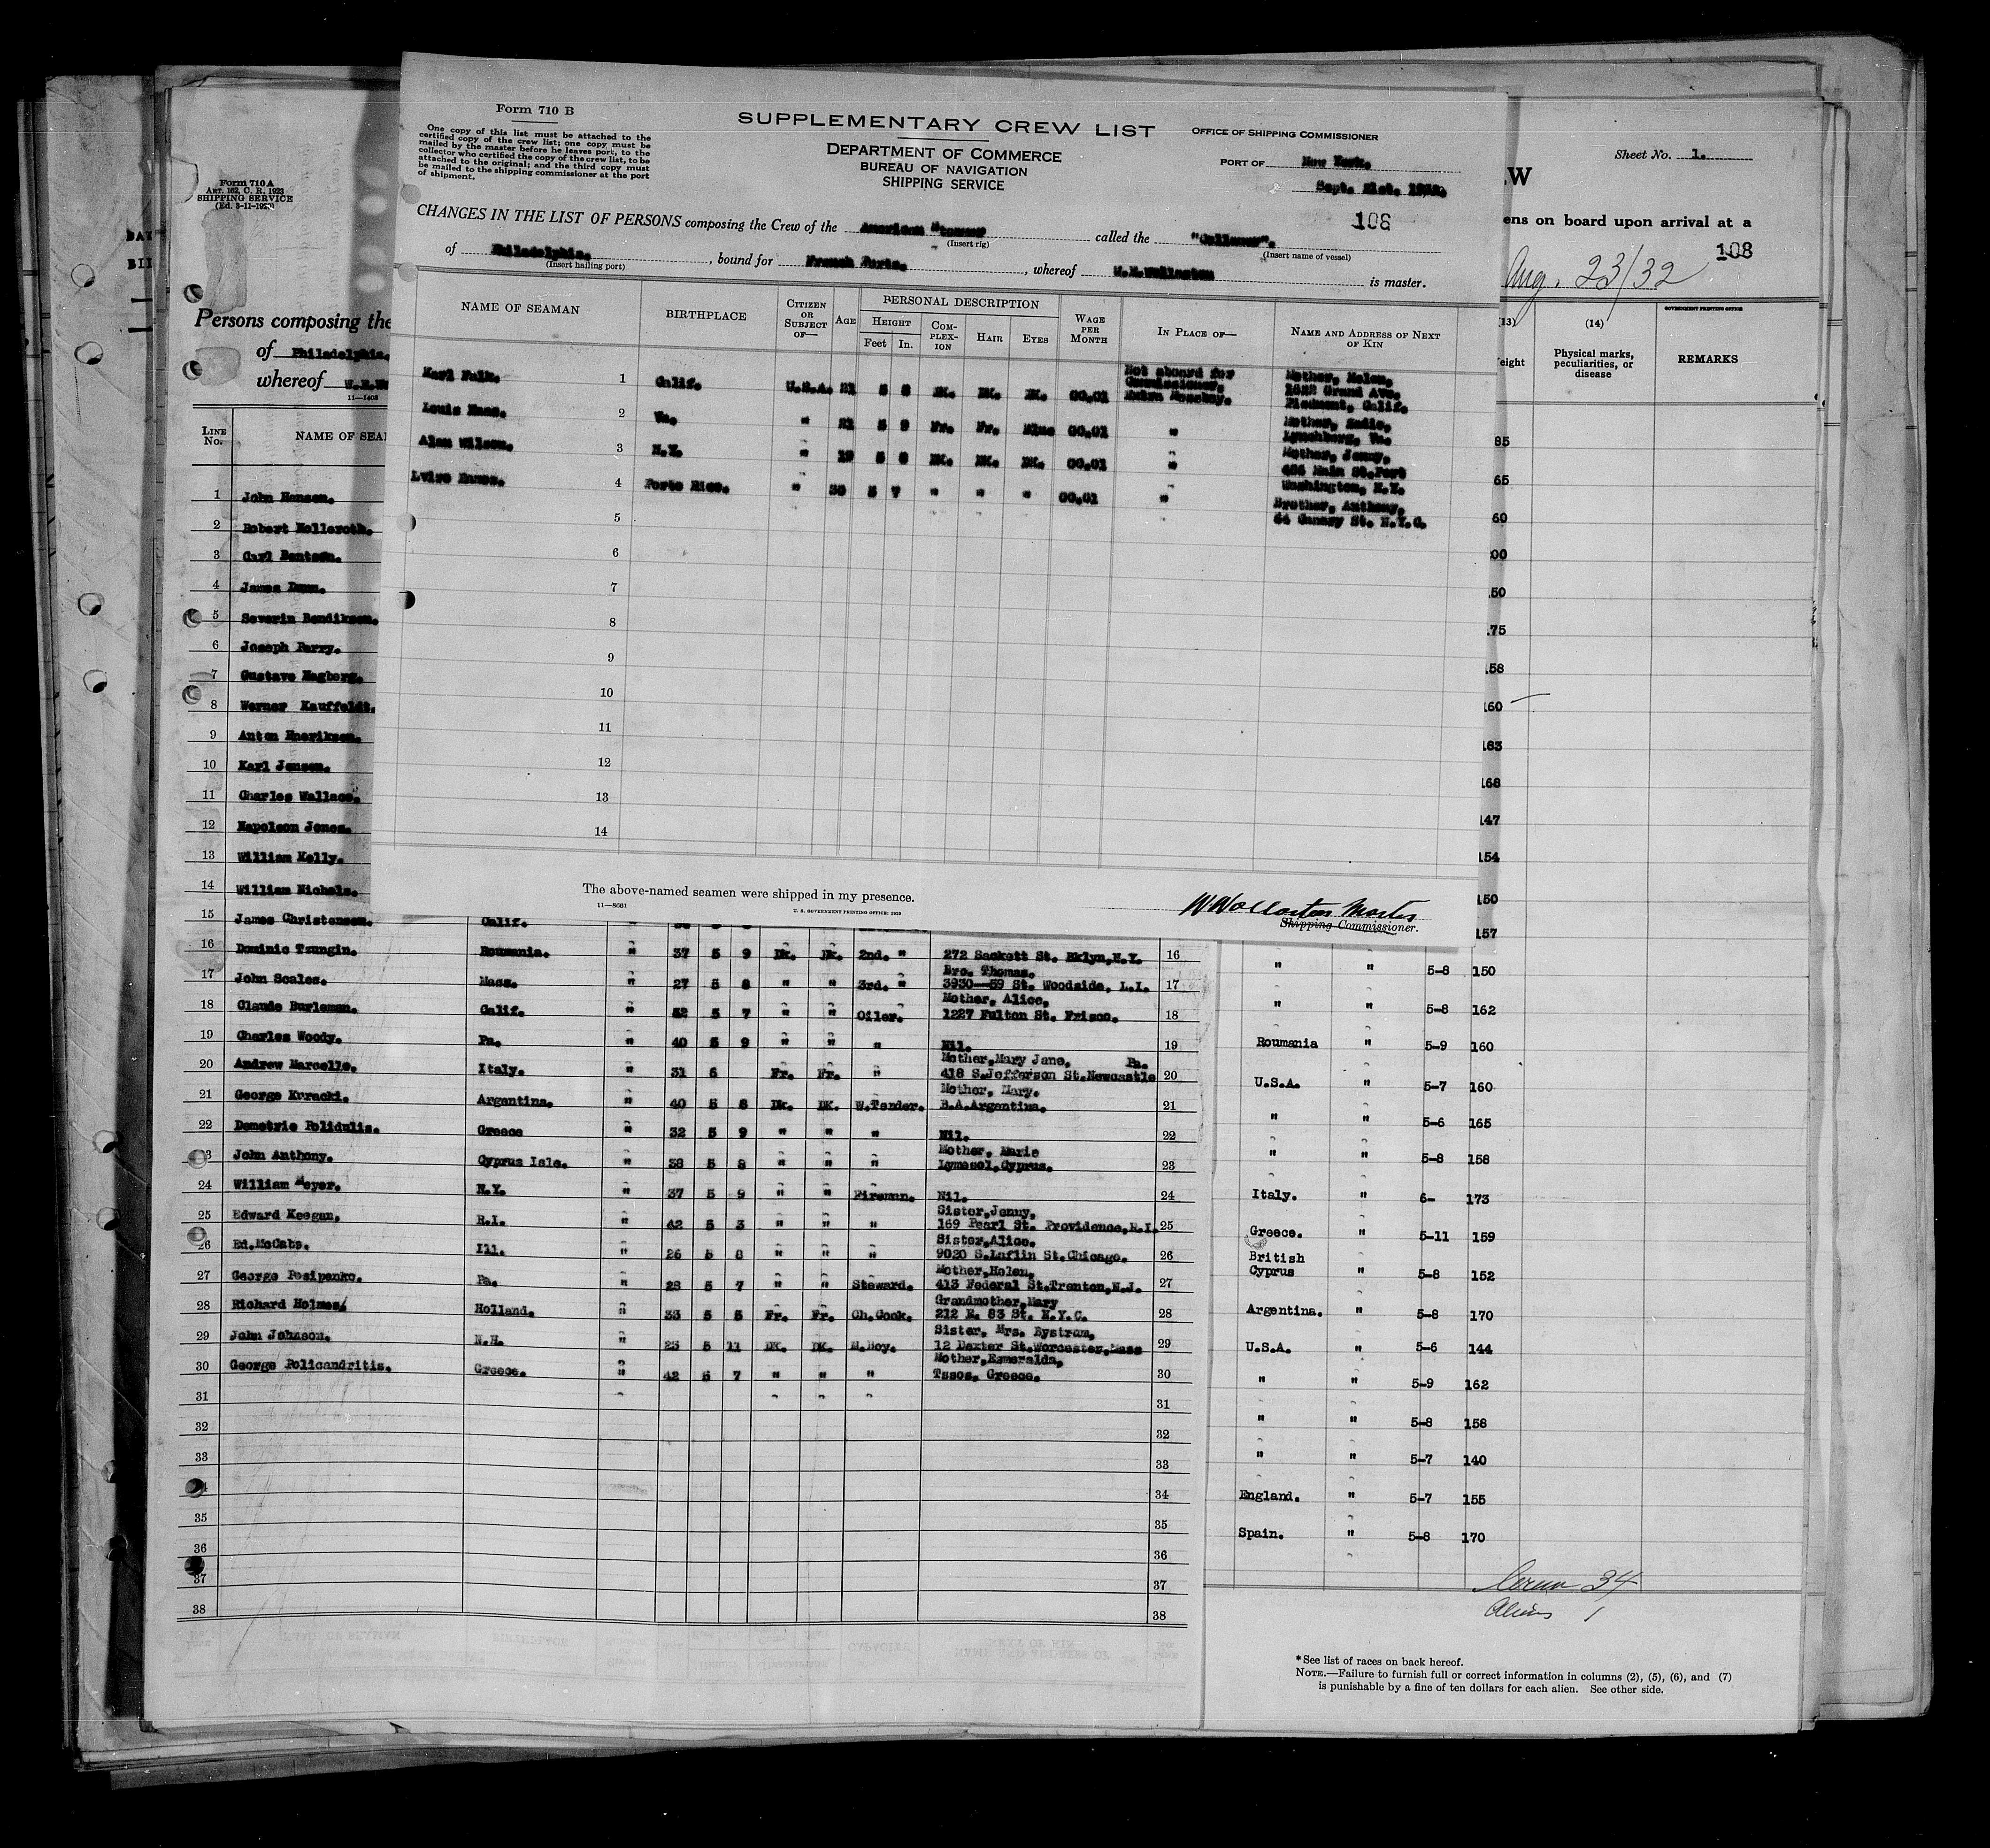 Form 710 B
One copy of this list must be attached to the
certified copy of the crew list; one copy must be
mailed by the master before he leaves port, to the
collector who certified the copy of the crew list, to be
attached to the original; and the third copy must
be mailed to the shipping commissioner at the port
of shipment.
SUPPLEMENTARY CREW LIST
DEPARTMENT OF COMMERCE
BUREAU OF NAVIGATION
SHIPPING SERVICE
OFFICE OF SHIPPING COMMISSIONER
PORT OF New York.
108
CHANGES IN THE LIST OF PERSONS composing the Crew of the American called the
(Insert rig) (Insert name of vessel)
of Philadelphia. , bound for French Ports. , whereof is master.
(Insert hailing port)
NAME OF SEAMAN BIRTHPLACE CITIZEN OR SUBJECT OF— AGE PERSONAL DESCRIPTION HEIGHT Feet In. COMPLEXION HAIR EYES WAGE PER MONTH IN PLACE OF— NAME AND ADDRESS OF NEXT OF KIN
Not aboard for Mother, Helen,
Karl Falk. 1 Calif. U.S.A. 21 5 8 DK. DK. DK. 00.01 Commissioner. Grand Ave.
Piedmont, Calif.
Louis 2 Va. " 21 5 9 Fr. Fr. Blue 00.01 " Mother, Sadie,
Lynchburg, Va.
Alan Wilson. 3 N.Y. " 19 5 8 DK. DK. DK. 00.01 " Mother, Jenny,
Main St. Port
Washington, N.Y.
4 Porto Rico. " 30 5 7 " " " 00.01 " Brother, Anthony,
St. N.Y.C.
5
6
7
8
9
10
11
12
13
14
The above-named seamen were shipped in my presence.
11—8661
U. S. GOVERNMENT PRINTING OFFICE: 1929
Master
Shipping Commissioner.
Form 710 A
ART. 162, C. R. 1923
SHIPPING SERVICE
Persons composing the
of Philadelphia.
whereof
11—1408
LINE No. NAME OF SEA
1 John Hansen.
2 Robert Holleroth.
3 Carl Bentsen.
4 James Dunn.
5 Severin Bendiksen.
6 Joseph Parry.
7 Gustave Hagberg.
8 Werner Kauffeldt.
9 Anton Henriksen.
10 Karl Jensen.
11 Charles Wallace.
12 Napoleon Jones.
13 William Kelly.
14 William Nichols.
15 James Christensen. Calif.
16 Dominic Tzungin. Roumania. " 37 5 9 Dk. Dk. 2nd. " 272 Sackett St. Bklyn,N.Y. 16
Bro. Thomas.
17 John Scales. Mass. " 27 5 8 " " 3rd. " 3930—59 St. Woodside, L.I. 17
Mother, Alice,
18 Claude Burleman. Calif. " 52 5 7 " " Oiler. 1227 Fulton St. Frisco. 18
19 Charles Woody. Pa. " 40 5 9 " " " Nil. 19
Mother,Mary Jane, Pa.
20 Andrew Marcelle. Italy. " 31 6 Fr. Fr. " 418 S.Jefferson St.Newcastle 20
Mother, Mary.
21 George Kuracki. Argentina. " 40 5 8 Dk. DK. W.Tender. B.A.Argentina. 21
22 Demetrie Polidulis. Greece " 32 5 9 " " " Nil. 22
Mother, Marie
23 John Anthony. Cyprus Isle. " 38 5 8 " " " Lymasol,Cyprus. 23
24 William Meyer. N.Y. " 37 5 9 " " Fireman. Nil. 24
Sister,Jenny,
25 Edward Keegan. R.I. " 42 5 3 " " " 169 Pearl St. Providence,R.I. 25
Sister,Alice.
26 Ed.McCabe. Ill. " 26 5 8 " " " 9020 S.Laflin St.Chicago. 26
Mother,Helen,
27 George Posipanko. Pa. " 28 5 7 " " Steward. 413 Federal St.Trenton,N.J. 27
Grandmother,Mary
28 Richard Holmes. Holland. " 33 5 5 Fr. Fr. Ch.Cook. 212 E. 83 St. N.Y.C. 28
Sister, Mrs. Bystrom,
29 John Johnson. N.H. " 23 5 11 DK. DK. M.Boy. 12 Dexter St.Worcester,Mass 29
Mother,Esmeralda,
30 George Policandritis. Greece. " 42 5 7 " " " Tssos, Greece. 30
31 31
32 32
33 33
34
35 35
36 36
37 37
38 38
W
Sheet No. 1.
ens on board upon arrival at a
108
Aug. 23/32
GOVERNMENT PRINTING OFFICE
(13) (14)
eight Physical marks, peculiarities, or disease REMARKS
85
65
60
00
50
175
158
160
163
168
147
154
150
157
" " 5-8 150
" " 5-8 162
Roumania " 5-9 160
U.S.A. " 5-7 160
" " 5-6 165
" " 5-8 158
Italy. " 6- 173
Greece. " 5-11 159
British
Cyprus " 5-8 152
Argentina. " 5-8 170
U.S.A. " 5-6 144
" " 5-9 162
" " 5-8 158
" " 5-7 140
England. " 5-7 155
Spain. " 5-8 170
34
Aliens 1
*See list of races on back hereof.
NOTE.—Failure to furnish full or correct information in columns (2), (5), (6), and (7)
is punishable by a fine of ten dollars for each alien. See other side.